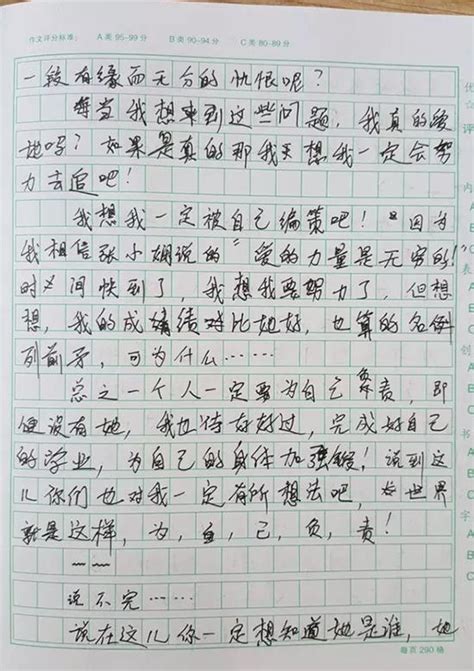 作文评分标准： A类 95-99分 B类 90-94分 C类 80-89分
一段有缘而无分的仇恨呢？
每当我想来到这些问题，我真的爱
她吗？如果是真的那我天想我一定会努
力去追吧！
我想我一定被自己编策吧！因为
我相信张小娴说的“爱的力量是无穷的！
时间快到了，我想我要努力了，但想
想，我的成绩对比她好，也算的名例
列前矛，可为什么……
总之一个人一定要为自己责，即
便没有她，我也待好好过，完成好自己
的学业，为自己的身体加强锻！说到这
儿你们也对我一定有所想法吧，世界
就是这样，为，自，己，负，责！
~~ ~~
说不完……
说在这儿你一定想知道她是谁，她
每页290格
优
☆
评
内
A
B
C
表
A
B
C
创
A
B
C
书
A
B
C
字
A
B
C